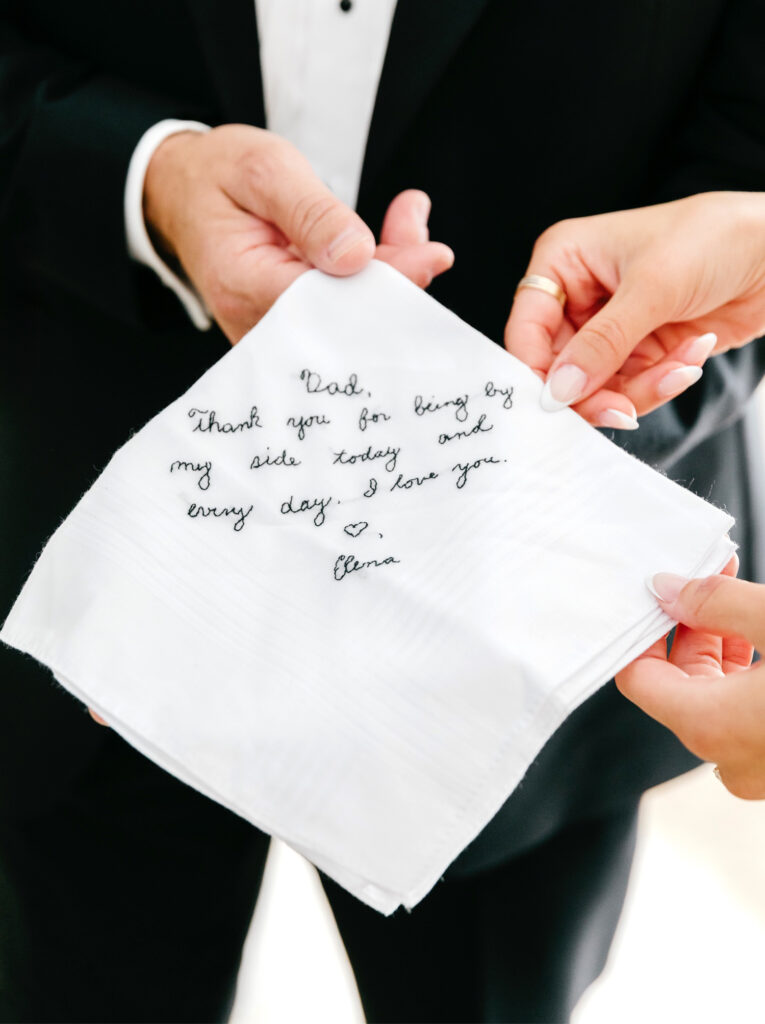 Dad,
Thank you for being by
my side today and
every day. I love you.
♡,
Elena